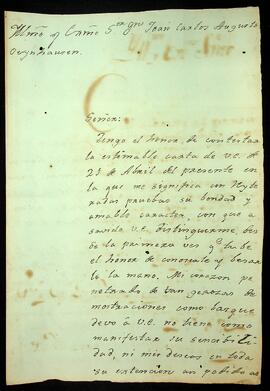 Illmo y Exmo Sor Gnl Juan Carlos Augusto
Oeynhausen.
Señor:
Tengo el honor de contextar
la estimable carta de V.E.
21 de Abril del presente en
la que me significa un Ryte
radas pruebas su bondad y
amable caracter, con que a
savido V.E. distinguirme des
de la primera ves q tube
el honor de conocerle y besar
le la mano. Mi corazon pe
netrado de tan
mostraciones como las que
devo á V.E. no tiene como
manifestar su sencibili
dad, ni mis deseos en toda
su estencion